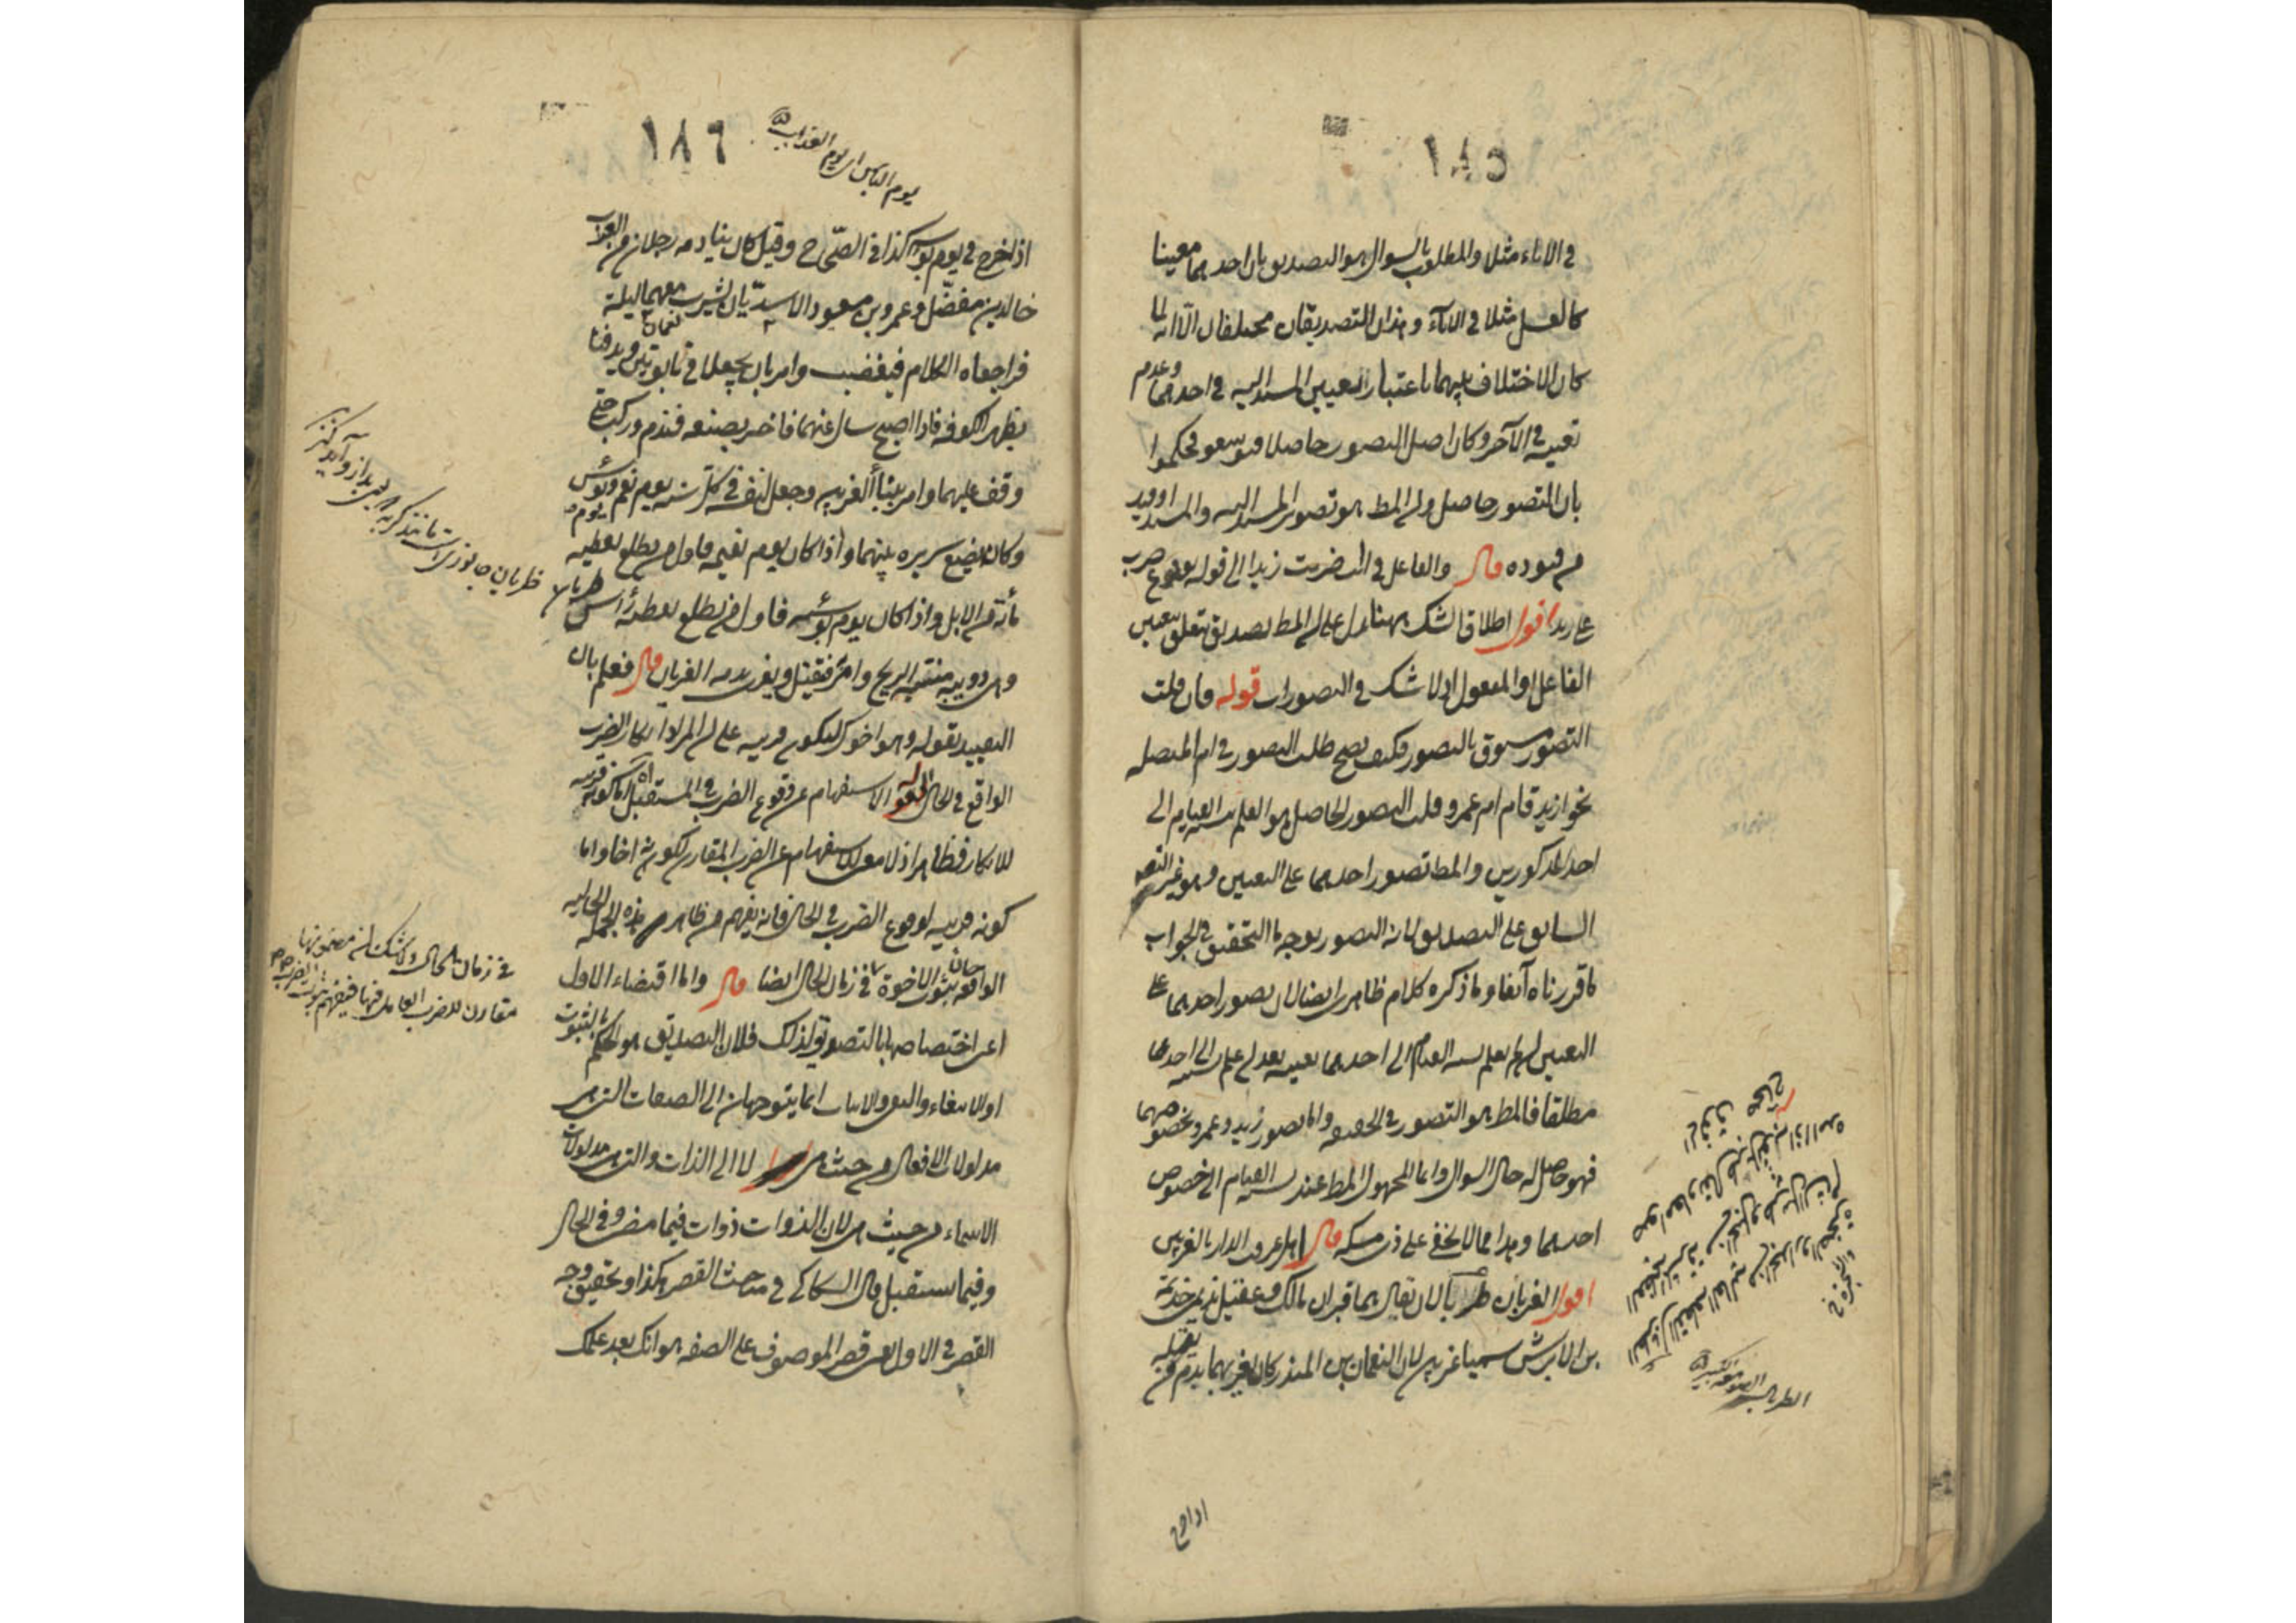 ١٨٥
في الاناء مثلا والمطلوب بالسوال هو التصديق بان احدهما معينا
كالعسل مثلا في الاناء وهذان التصديقان مختلفان الا انه لما
كان الاختلاف بينهما باعتبار تعيين المسند اليه في احدهما وعدم
تعينه في الآخر وكان اصل التصور حاصلا توسعوا فحكموا
بان التصور حاصل وان المط هو تصور المسند اليه والمسند او قيد
من قيوده قال والفاعل في اانت ضربت زيدا الى قوله وقوع ضرب
على زيد اقول اطلاق الشك ههنا يدل على ان المط تصديق متعلق بتعيين
الفاعل او المفعول اذ لا شك في التصورات قوله فان قلت
التصور مسبوق بالتصور فكيف يصح طلب التصور في ام المتصلة
نحو ازيد قام ام عمرو قلت التصور الحاصل هو العلم بنسبة القيام الى
احد المذكورين والمط تصور احدهما على التعيين وهو غير التصور
السابق على التصديق لانه التصور بوجه ما التحقيق في الجواب
ما قررناه آنفا وما ذكره كلام ظاهري ايضا لان تصور احدهما على
التعيين ان لم يعلم نسبة القيام الى احدهما بعينه بعد ان علم نسبته الى احدهما
مطلقا فالمط هو التصور في الحقيقة واما تصور زيد وعمرو بخصوصهما
فهو حاصل له حال السوال وانما المجهول المط عنده نسبة القيام الى خصوص
احدهما وهذا مما لا يخفى على ذي مسكة قال اهل عرف الدار بالغريين
اقول الغريان طربالان يقال هما قبران مالك وعقيل نديمي خذيمة
بن الابرش سميا غريين لان النعمان بن المنذر كان يغريهما بدم من يقتله
الطربال الصومعة الكبيرة
اذا خرج
١٨٦
يوم البأس اي يوم العذاب
اذا خرج في يوم بؤسه كذا في الصحاح وقيل كان ينادمه رجلان من العرب
خالد بن مفضل وعمرو بن مسعود الاسديان يشرب معهما ليلة
فراجعاه الكلام فيغضب وامر بان يجعلا في تابوتين ويدفنا
بظهر الكوفة فاذا اصبح سال عنهما فاخبر بصنعه فندم وركب حتى
وقف عليهما وامر ببناء الغريين وجعل لنفسه في كل سنة يوم نعم ويوم بؤس
وكان يضع سريره بينهما واذا كان يوم نعيمه فاول من يطلع يعطيه
مأئة من الابل واذا كان يوم بؤسه فاول من يطلع يعطيه رأس ظربان
وهي دويبة منتنة الريح وامر فيقتل ويغرى بدمه الغريان قال فعلم بان
التقييد بقوله وهو اخوك ليكون قرينة على ان المراد انكار الضرب
الواقع في الحال لا الاستفهام عن وقوع الضرب في المستقبل اما كونه قرينة
للانكار فظاهر اذ لا معنى للاستفهام عن الضرب المقارن لكونه اخا واما
كونه قرينة لوقوع الضرب في الحال فلانه يفهم من ظاهر هذه الجملة الحالية
الواقعة ثبوت الاخوة في زمان الحال ايضا قال واما اقتضاء الاول
اعني اختصاصها بالتصديق لذلك فلان التصديق هو الحكم بالثبوت
او الانتفاء والنفي والاثبات انما يتوجهان الى الصفات التي هي
مدلولات الافعال من حيث هي لا الى الذوات والتي هي مدلولات
الاسماء من حيث هي لان الذوات ذوات فيما مضى وفي الحال
وفيما يستقبل قال السكاكي في مبحث القصر هكذا وتحقيق وجه
القصر في الاول يعني قصر الموصوف على الصفة هو انك بعد علمك
في زمان الحال ولا شك ان مضمونها
مقارن للضرب العامل فيها فيفهم